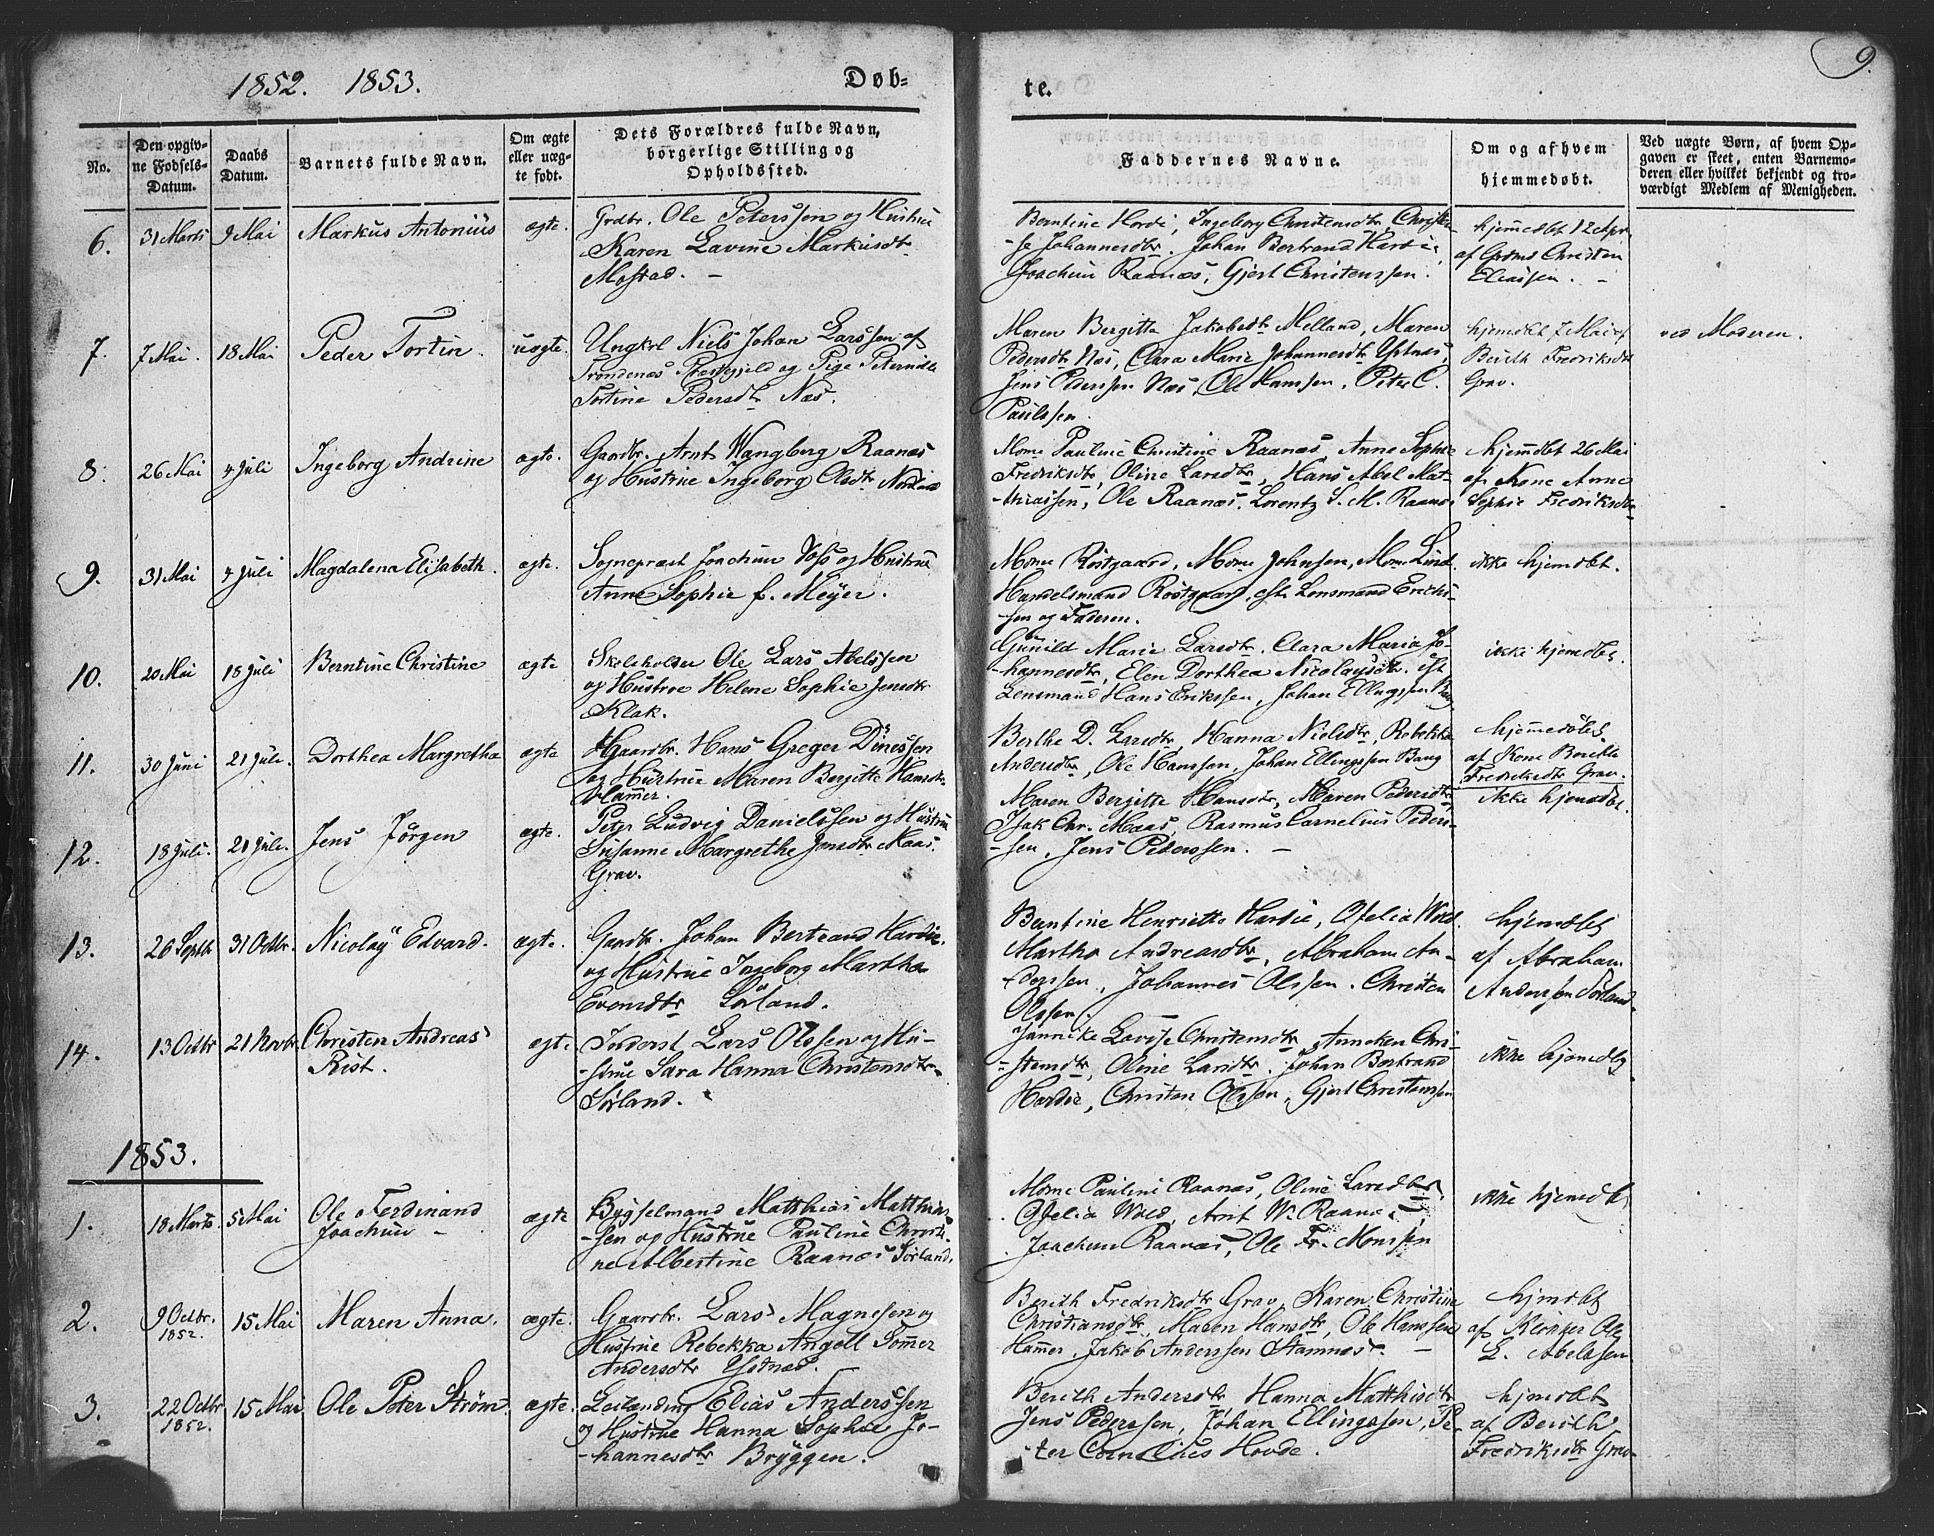 1852. 1853.
Døb=
te.
9.
No.
Den opgiv-
ne Fødsels-
Datum.
Daabs
Datum.
Barnets fulde Navn.
Om ægte
eller uæg-
te født.
Dets Forældres fulde Navn,
borgerlige Stilling og
Opholdssted.
Faddernes Navne.
Om og af hvem
hjemmedøbt.
Ved uægte Børn, af hvem Op-
gaven er skeet, enten Barnemo-
deren eller hvilket bekjendt og tro-
værdigt Medlem af Menigheden.
6. 31 Marts 9 Mai Markus Antonius ægte.
Grdbr. Ole Peterssen og Hustrue
Karen Lavine Markusdtr
Mostad. –
Berntine Hordi, Ingeborg Christensdtr, Christen-
-se Johannesdtr. Johan Bertrand Hardie
Joachim Raanæs, Gjert Christenssen.
hjemmedbt 12 Apr.
af Christen
Eliassen. –
7. 7 Mai. 18 Mai Peder Tortin. uægte.
Ungkrl Niels Johan Larssen af
Trondenæs Præstegjeld og Pige
Tortine Pedersdtr Næs.
Maren Bergitta Jakobsdtr Melland, Maren
Pedersdtr Næs, Clara Marie Johannesdtr Ystnæs,
Jens Pederssen Næs, Ole Hanssen, Peter C.
Paulssen.
hjemdbt 7 Mai af
Berith Fredriksdtr
Grav.
ved Moderen.
8. 26 Mai 4 Juli Ingeborg Andrine ægte.
Gaardbr. Arnt Wangberg Raanæs
og Hustrue Ingeborg Olsdtr
Mome Pauline Christine Raanæs, Anne Sophie
Fredriksdtr, Oline Larsdtr, Hans Abel Mat-
-thiassen, Ole Raanæs, Lorentz S. M. Raanæs
hjemdbt 26 Mai
af Kone Anne
Sophie Fredriksdtr
9. 31 Mai 4 Juli Magdalena Elisabeth. ægte.
Sognepræst Joachim Voss og Hustrue
Anne Sophie f. Meyer.
Mome Röstgaard, Mome Johnsen, Mome Lind.
Handelsmand Röstgaard, Lensmand Eriks-
sen og Faderen.
ikke hjemdbt.
10. 20 Mai 18 Juli Berntine Christine ægte
Skoleholder Ole Lars Abelssen
og Hustroe Helene Sophie Jensdtr
Klak.
Gunild Marie Larsdtr. Clara Maria Jo-
hannesdtr, Elen Dorthea Nicolaysdtr.
Lensmand Hans Erikssen, Johan Ellingssen
ikke hjemdbt.
11. 30 Juni 21 Juli. Dorthea Margretha ægte
Gaardbr. Hans Greger Dinessen
og Hustrue Maren Bergitte Hansdtr
Hammer.
Berthe D. Larsdtr, Hanna Nielsdtr, Rebekka
Andersdtr, Ole Hanssen, Johan Ellingssen Bang
hjemmedøbt
af Kone Berith
Fredriksdtr Grav.
12. 18 Juli. 21 Juli. Jens Jørgen ægte.
Peter Ludvig Danielssen og Hustrue
Susanne Margrethe Jensdtr Maas.
Grav.
Maren Bergitte Hansdtr, Maren Pedersdtr,
Isak Chr. Maas, Rasmus Cornelius Peders-
-sen, Jens Pederssen. –
ikke hjemdbt.
13. 26 Septbr 31 Octbr. Nicolay Edvard. ægte.
Gaardbr. Johan Bertrand Hardie.
og Hustrue Ingeborg Martha
Evensdtr Sørland.
Berntine Henriette Hardie, Ofelia Wold
Martha Andreasdtr, Abraham An-
-derssen, Johannes Olssen. Christen
Olssen.
hjemdbt
af Abraham
Anderssen Sørland
14. 13 Octbr 21 Novbr. Christen Andreas
Rist.
ægte
Inderst Lars Olssen og Hu-
-strue Sara Hanna Christensdtr
Sørland.
Jannike Lovise Christensdtr, Anneken Chri-
-stensdtr, Oline Larsdtr. Johan Bertrand
Hardie, Christen Olssen, Gjert Christenssen
ikke hjemdbt
1853.
1. 18 Marts 5 Mai Ole Ferdinand
Joachim –
ægte
Bygselmand Matthias Matthias-
-sen og Hustrue Pauline Christi-
ne Albertine Raanæs Sørland.
Mome Pauline Raanæs, Oline Larsdtr,
Ofelia Wold, Arnt W. Raanæs,
Joachim Raanæs, Ole Fr. Monssen
ikke hjemdbt
2. 9 Octbr.
1852.
15 Mai Maren Anna. ægte.
Gaardbr. Lars Magnesen og
Hustrue Rebekka Angell Sommer
Andersdtr Ystnæs.
Berith Fredriksdtr Grav, Karen Christine
Christiansdtr, Maren Hansdtr, Ole Hanssen
Hammer, Jakob Anderssen Stamnæs. –
hjemdbt
af Klokker Ole
L. Abelssen
3. 22 Octbr
1852.
15 Mai Ole Peter Strøm. ægte.
Elias Anderssen
og Hustrue Hanna Sophie Jo-
-hannesdtr Bryggen.
Berith Andersdtr Hanna Matthisdtr
Jens Pederssen, Johan Ellingssen, Pe-
-ter Cornelius Hovde.
hjemdbt
af Berith
Fredriksdtr Grav